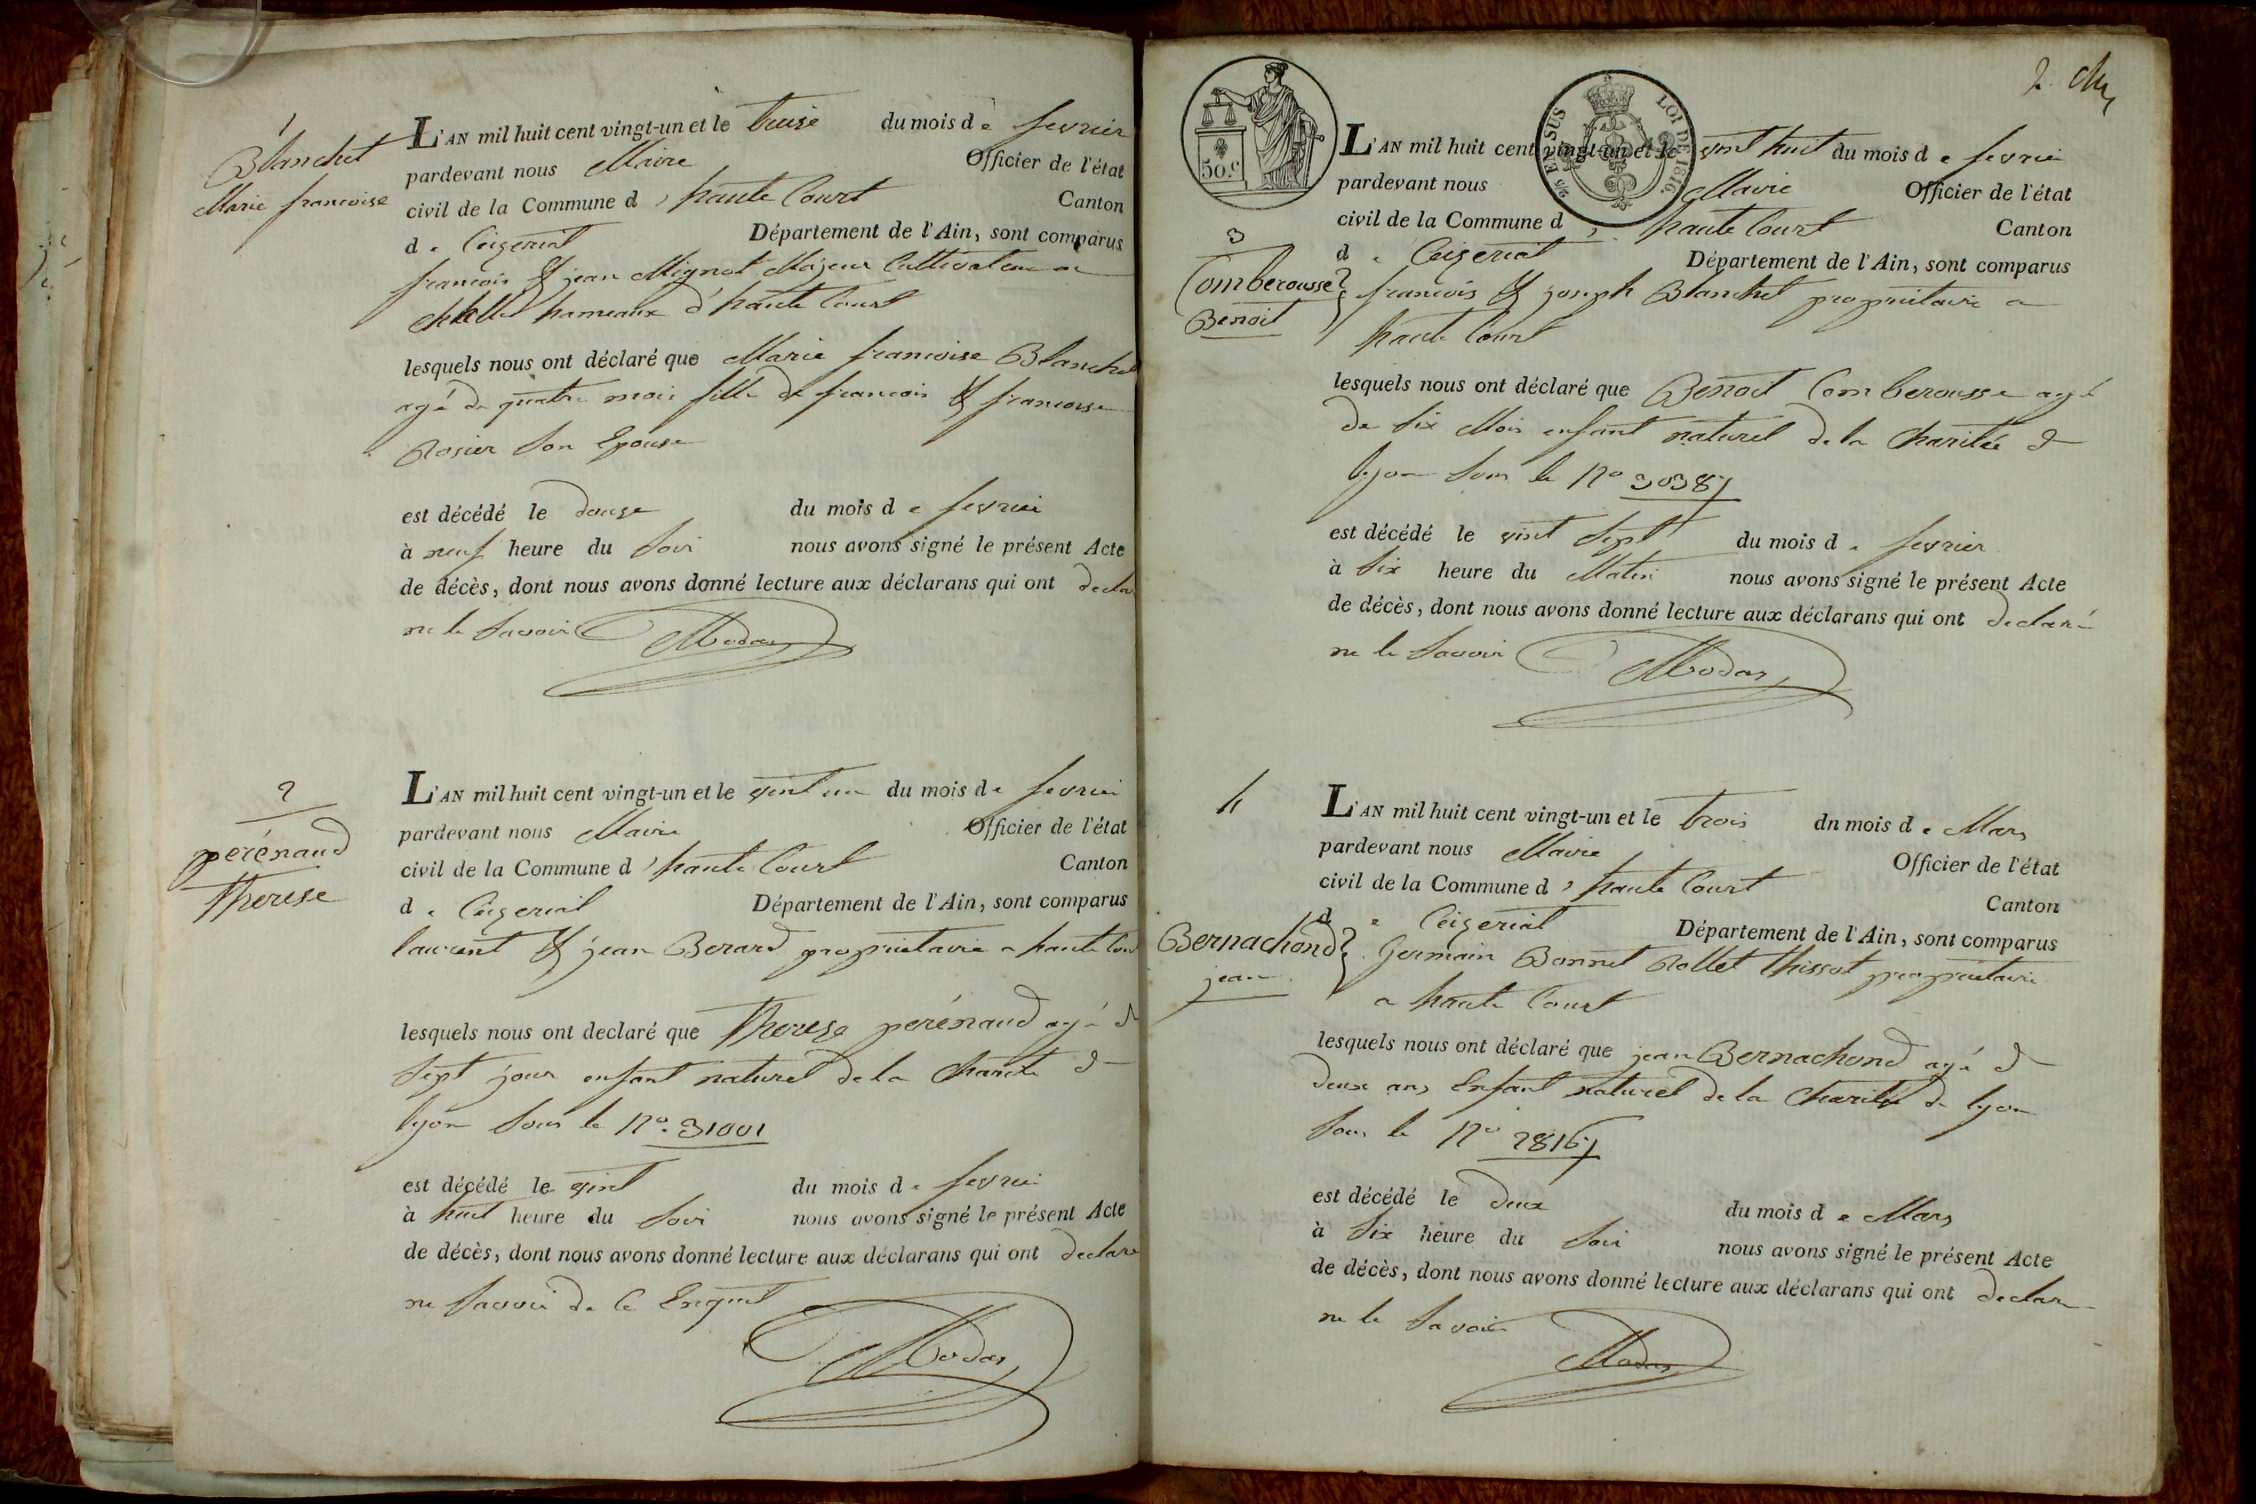 1
Blanchet
Marie francoise
L'AN mil huit cent vingt-un et le treise du mois de fevrier
pardevant nous Maire Officier de l'état
civil de la Commune d'haute Court Canton
de Ceizeriat Département de l'Ain, sont comparus
francois & jean Mignot Majeur Cultivateur a
hameaux d'haute Court
lesquels nous ont déclaré que Marie francoise Blanchet
agé de quatre mois fille de francois & francoise
Rosier Son Epouse
est décédé le douse du mois de fevrier
à neuf heure du Soir nous avons signé le présent Acte
de décès, dont nous avons donné lecture aux déclarans qui ont declaré
ne le Savoir Modas
2
perénaud
Therese
L'AN mil huit cent vingt-un et le vint un du mois de fevrier
pardevant nous Maire Officier de l'état
civil de la Commune d'haute Court Canton
de Ceizeriat Département de l'Ain, sont comparus
laurent & jean Berard proprietaire a haute Court
lesquels nous ont declaré que Therese perénaud agé de
Sept jour enfant naturel de la Charité de
lyon Sous le No. 31001
est décédé le vint du mois de fevrier
à huit heure du Soir nous avons signé le présent Acte
de décès, dont nous avons donné lecture aux déclarans qui ont declaré
ne Savoir de ce Enquit
Modas
2.
50.c
25 E. SUS LOI DE 1816.
L'AN mil huit cent vingt-un et le vint huit du mois de fevrier
pardevant nous Maire Officier de l'état
civil de la Commune d'haute Court Canton
de Ceizeriat Département de l'Ain, sont comparus
3
Comberousse
Benoit
francois & joseph Blanchet proprietaire a
haute Court
lesquels nous ont déclaré que Benoit Comberousse agé
de Six Mois enfant naturel de la Charitée de
lyon Sous le No 30387
est décédé le vint Sept du mois de fevrier
à Six heure du Matin nous avons signé le présent Acte
de décès, dont nous avons donné lecture aux déclarans qui ont declaré
ne le Savoir Modas
4
Bernachond
jean
L'AN mil huit cent vingt-un et le trois dn mois de Mars
pardevant nous Maire Officier de l'état
civil de la Commune d'haute Court Canton
de Ceizeriat Département de l'Ain, sont comparus
Germain Bonnet Rollet Thissot proprietaire
a haute Court
lesquels nous ont déclaré que jean Bernachond agé de
deux ans Enfant naturel de la Charité de lyon
Sous le No 28167
est décédé le deux du mois de Mars
à Six heure du Soir nous avons signé le présent Acte
de décès, dont nous avons donné lecture aux déclarans qui ont declaré
ne le Savoir
Modas